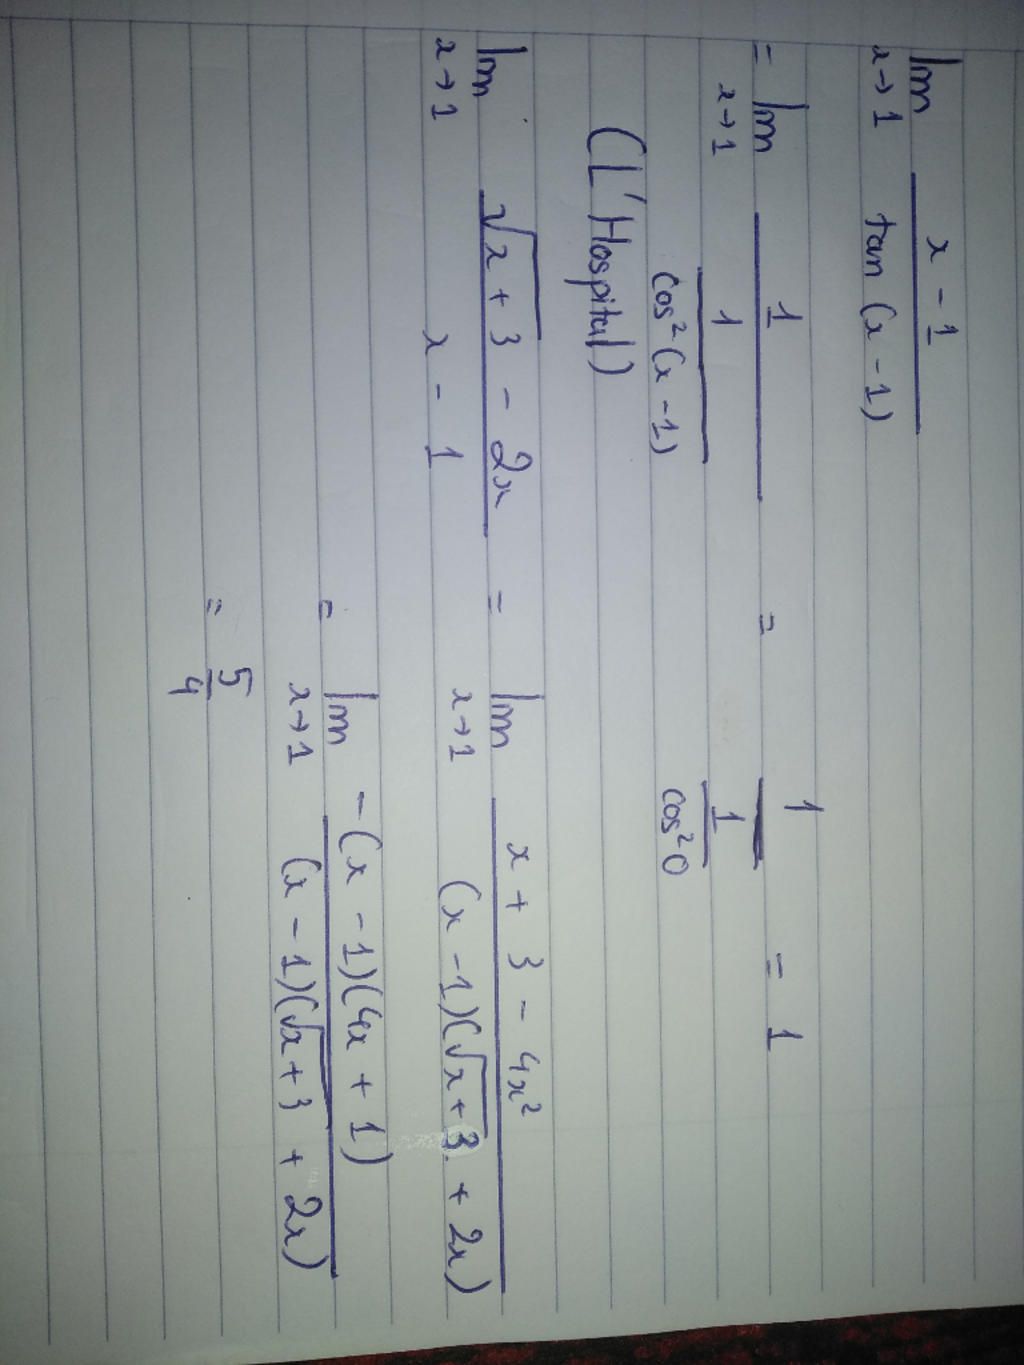 lim x→1 x - 1 / tan (x - 1)
= lim x→1 1 / (1 / cos²(x - 1)) = 1 / (1 / cos²0) = 1
(L'Hospital)
lim x→1 √x + 3 - 2x / x - 1 = lim x→1 x + 3 - 4x² / (x - 1)(√x + 3 + 2x)
= lim x→1 -(x - 1)(4x + 1) / (x - 1)(√x + 3 + 2x)
= 5/4